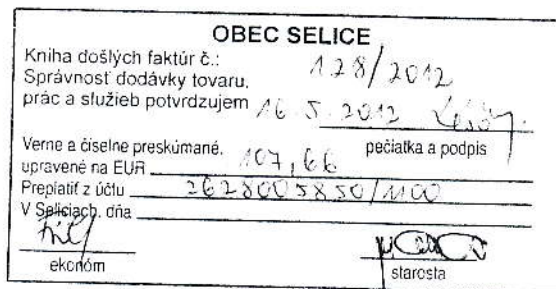 OBEC SELICE
Kniha došlých faktúr č.: 128/2012
Správnosť dodávky tovaru,
prác a služieb potvrdzujem 16.5.2012
pečiatka a podpis
Verne a číselne preskúmané,
upravené na EUR 107,66
Preplatiť z účtu 2628005850/1100
V Seliciach, dňa
ekonóm
starosta